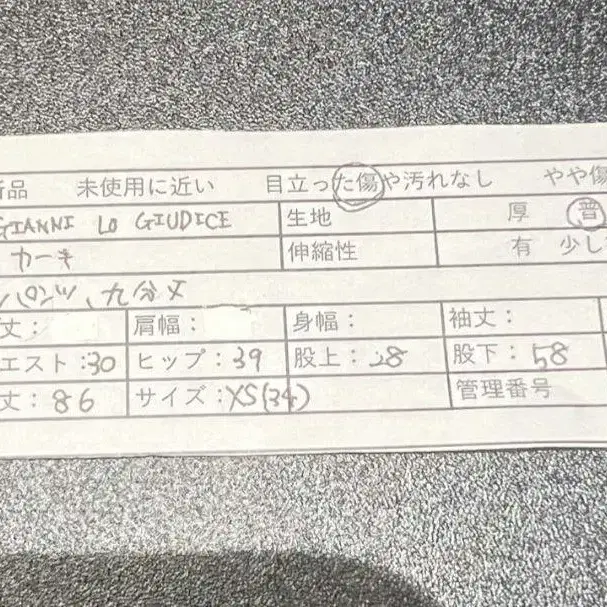 新品 未使用に近い 目立った傷や汚れなし やや傷
GIANNI LO GIUDICE 生地 厚 普
カーキ 伸縮性 有 少し
パンツ、九分丈
丈： 肩幅： 身幅： 袖丈：
エスト：30 ヒップ：39 股上：28 股下：58
丈：86 サイズ：XS(34) 管理番号